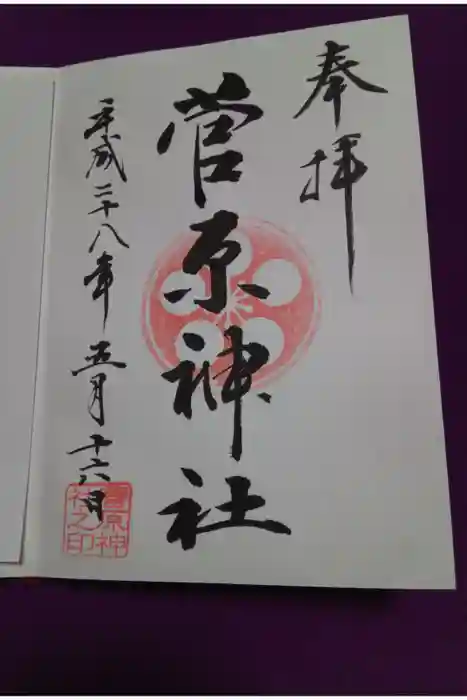 奉拝
菅原神社
平成二十八年五月十六日
菅原神
社之印